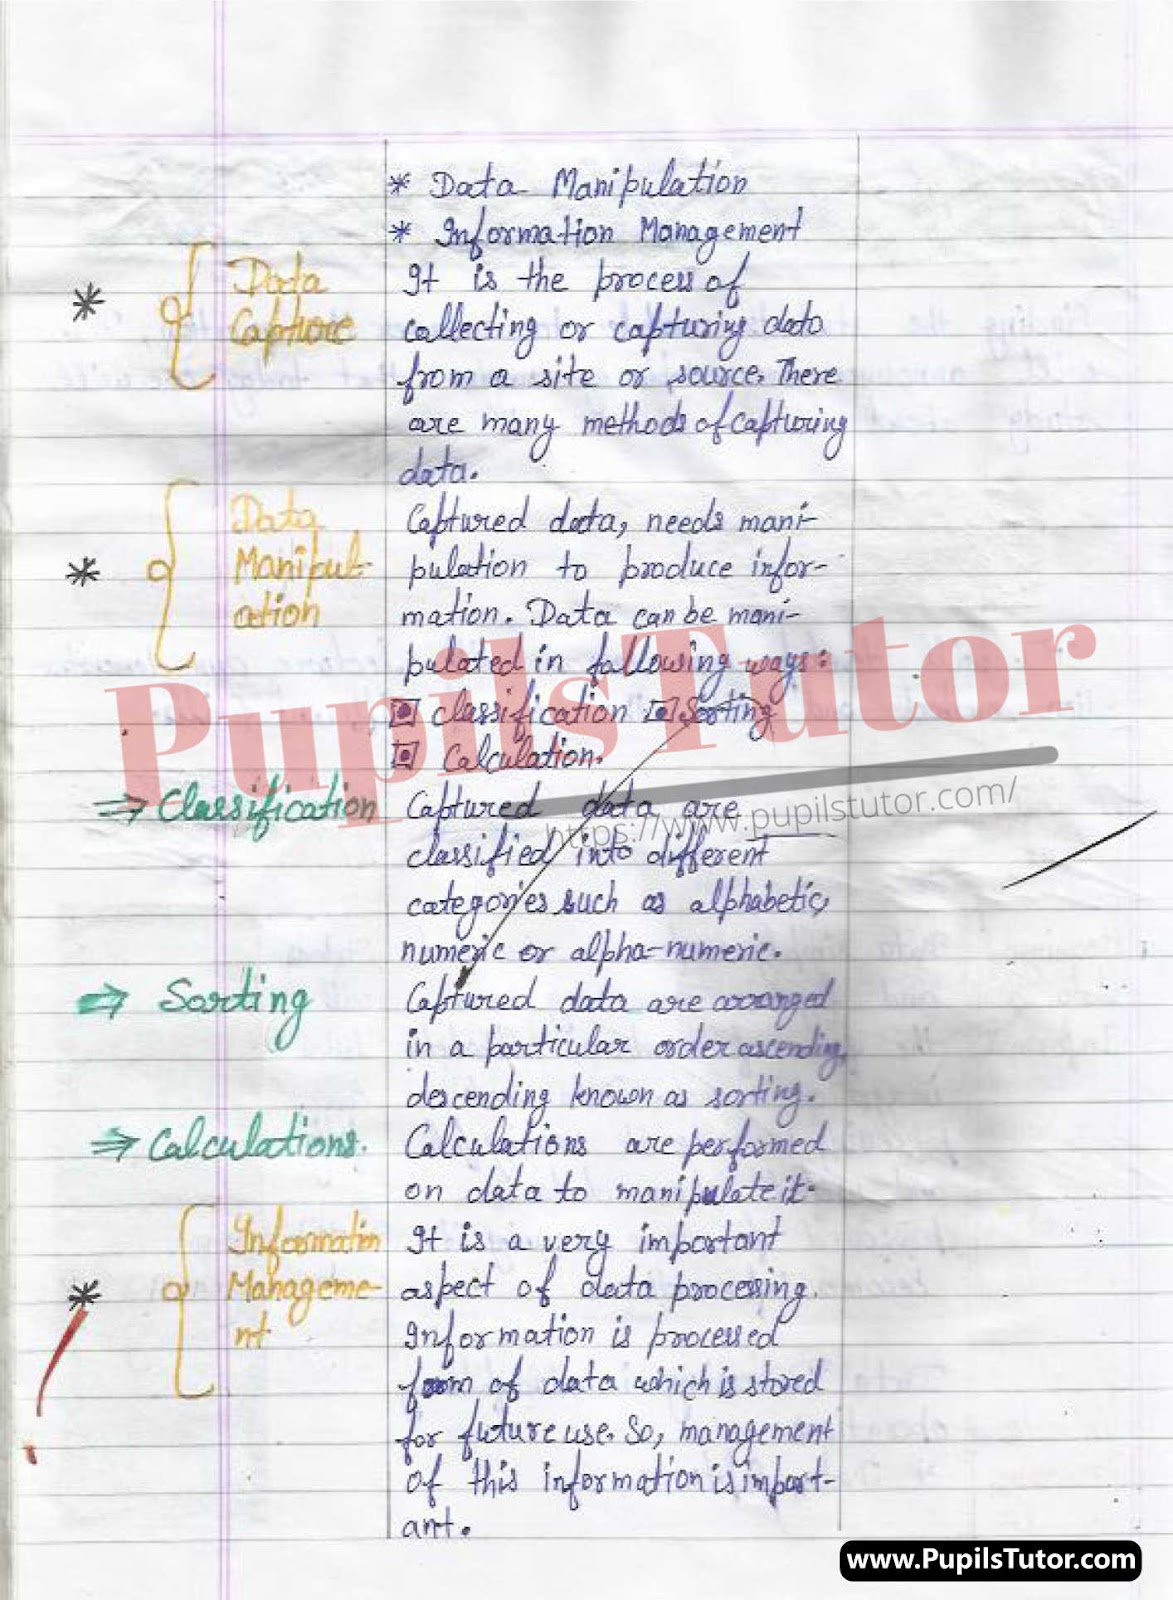 * Data Manipulation
* Information Management
* Data Capture
It is the process of
collecting or capturing data
from a site or source. There
are many methods of capturing
data.
* Data Manipul-
ation
Captured data, needs mani-
pulation to produce infor-
mation. Data can be mani-
pulated in following ways:
classification Sorting
Calculation.
PupilsTutor
https://www.pupilstutor.com/
⇒ Classification
Captured data are
classified into different
categories such as alphabetic,
numeric or alpha-numeric.
⇒ Sorting
Captured data are arranged
in a particular order ascending,
descending known as sorting.
⇒ Calculations.
Calculations are performed
on data to manipulate it.
* Information
Manageme-
nt
It is a very important
aspect of data processing.
Information is processed
form of data which is stored
for future use. So, management
of this information is import-
ant.
www.PupilsTutor.com